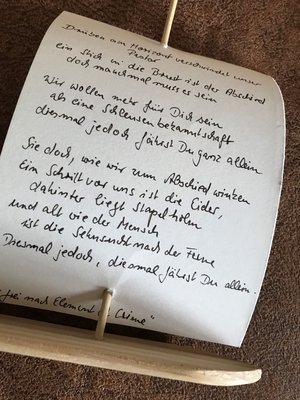 Draußen am Horizont verschwindet unser
Pastor
ein Stich in die Brust ist der Abschied
doch manchmal muss es sein
Wir wollen mehr für Dich sein
als eine Schleusenbekanntschaft
diesmal jedoch fährst Du ganz allein
Sie doch, wie wir zum Abschied winken
Ein Schritt vor uns ist die Eider,
dahinter liegt Stapelholm
und alt wie der Mensch
ist die Sehnsucht nach der Ferne
Diesmal jedoch, diesmal fährst Du allein.
frei nach Element of "Crime"